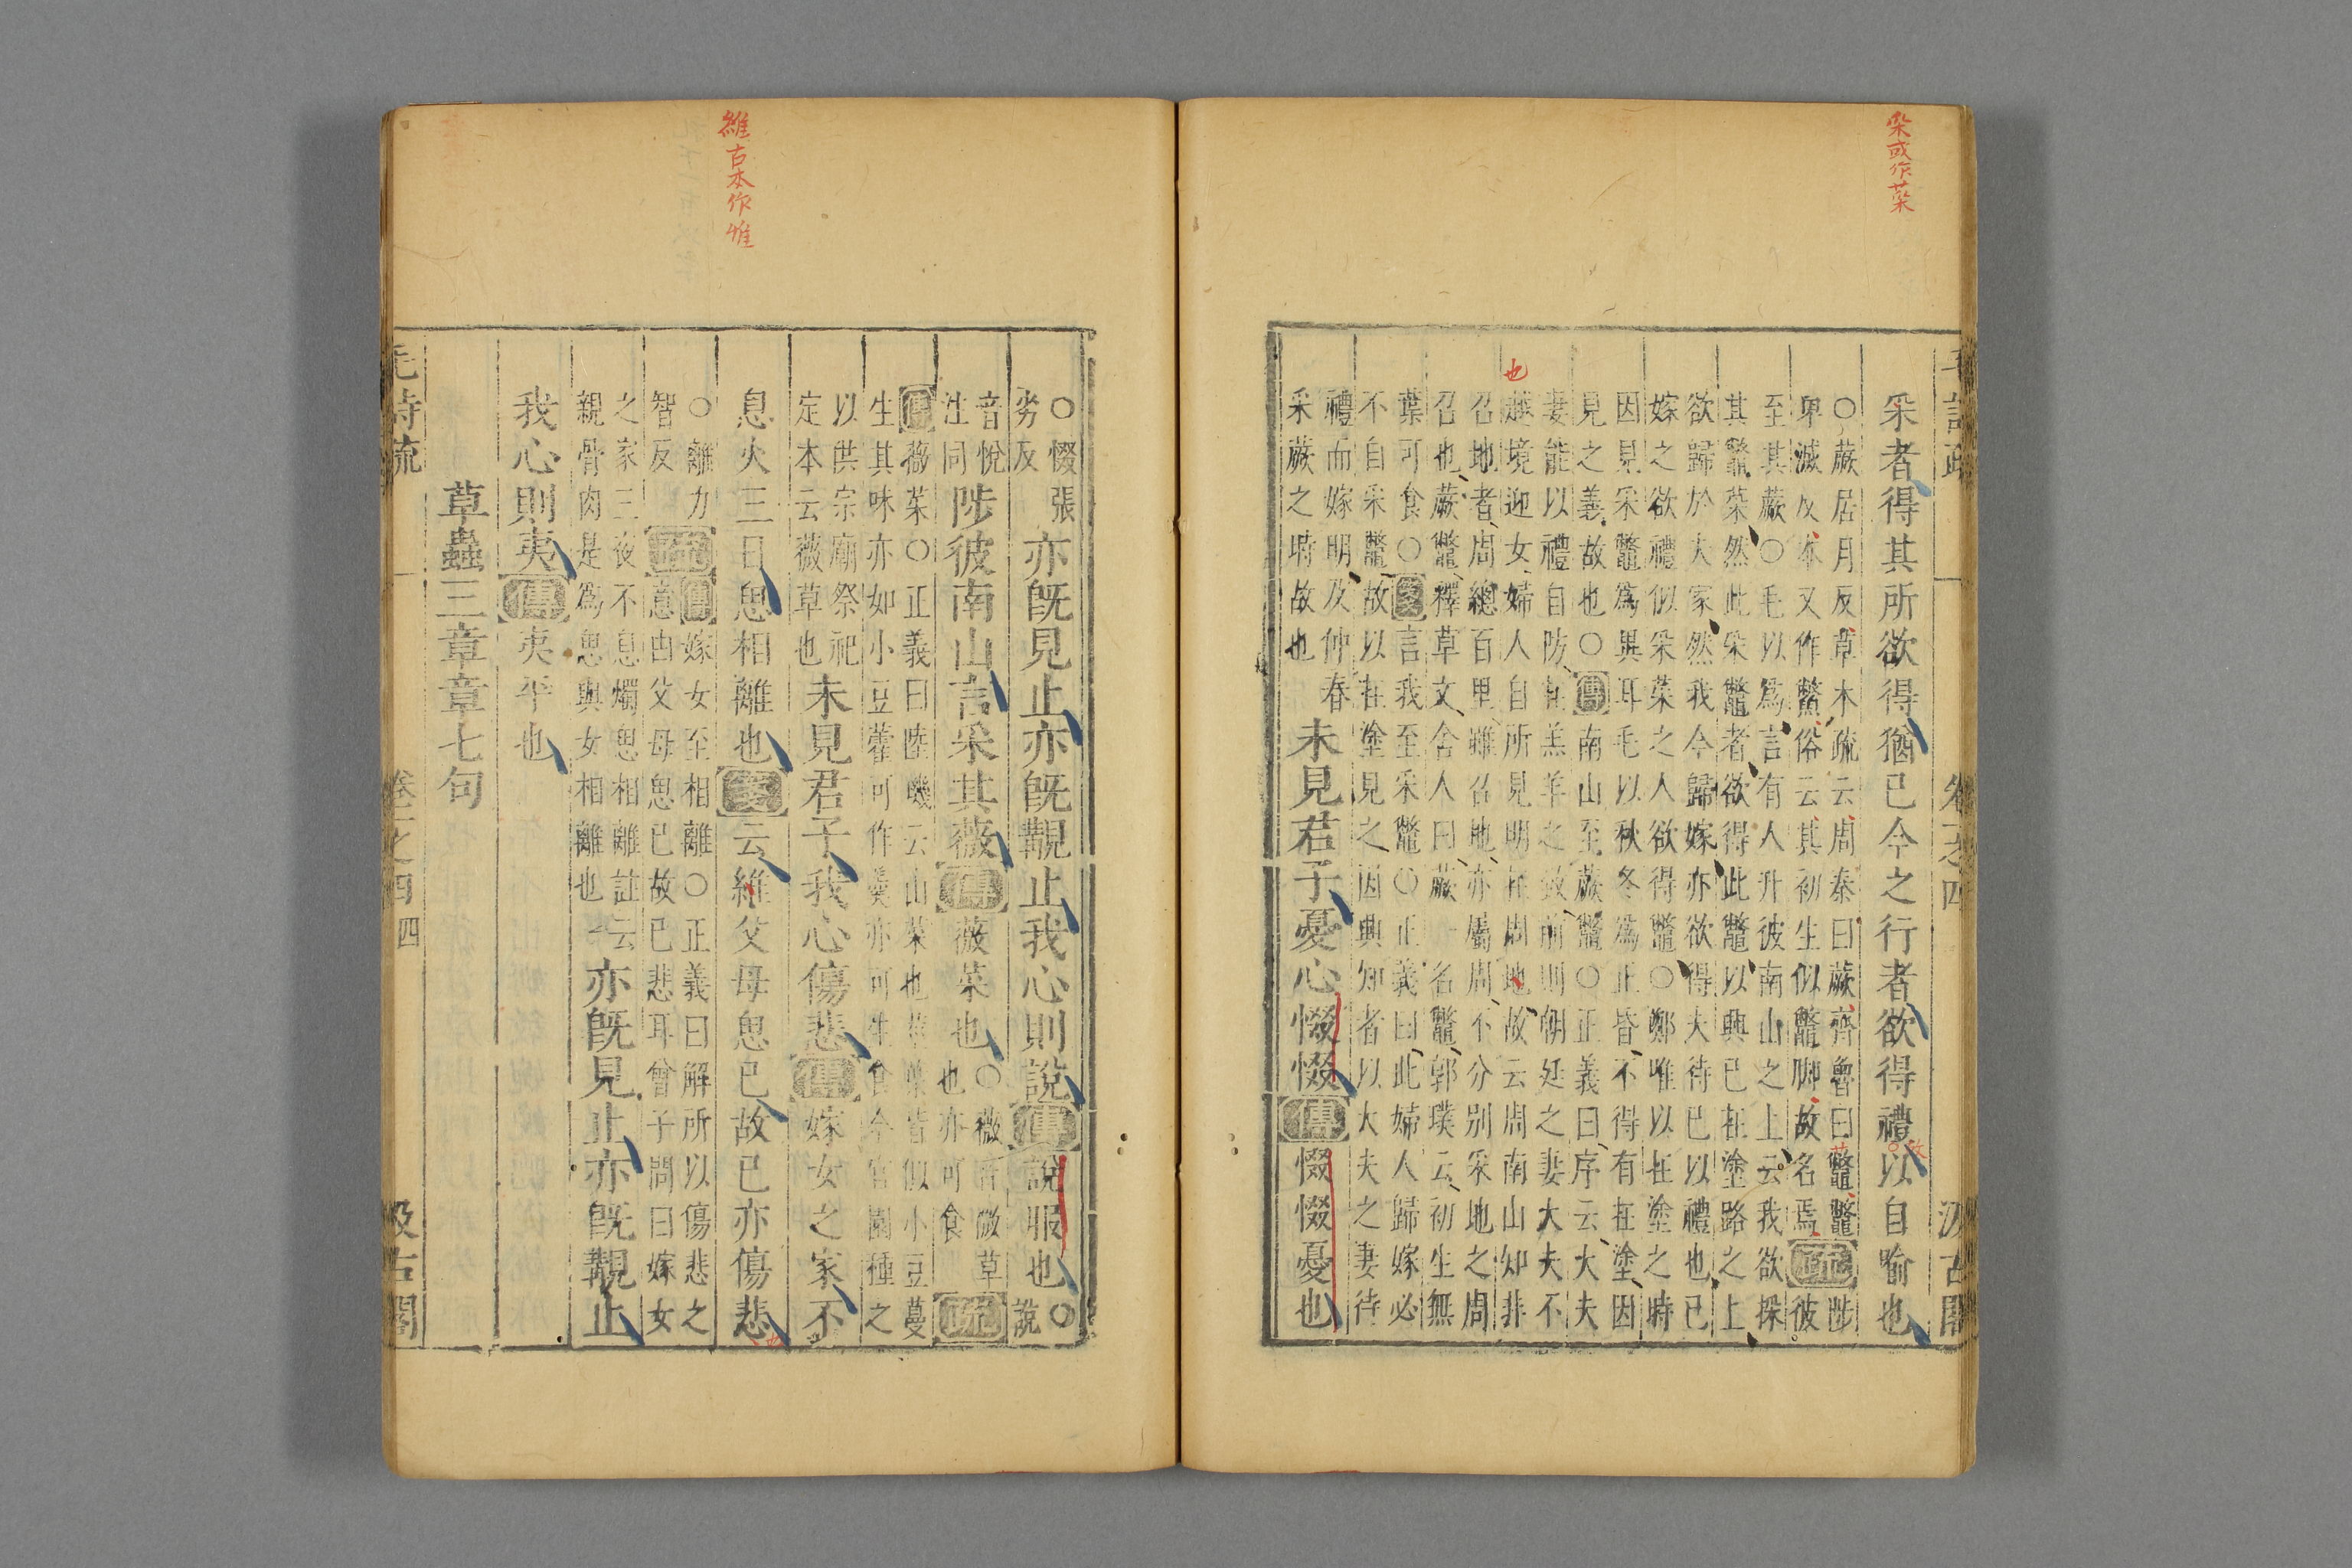 采或作菜
采者得其所欲得猶已今之行者欲得禮以自喻也
○蕨居月反草木疏云周秦曰蕨齊魯曰虌虌
卑滅反本又作鱉俗云其初生似鼈脚故名焉疏陟彼
至其蕨○毛以爲言有人升彼南山之上云我欲採
其鼈菜然此采鼈者欲得此鼈以興已在塗路之上
欲歸於大家然我今歸嫁亦欲得大待已以禮也已
嫁之欲禮似采菜之人欲得鼈○鄭唯以在塗之時
因見采鼈爲異耳毛以秋冬爲正昏不得有在塗因
見之義故也○傳南山至蕨鼈○正義曰序云大夫
妻能以禮自防在羔羊之致前則朝廷之妻大夫不
也
越境迎女婦人自所見明在周地故云周南山知非
召地者周總百里雖召地亦屬周不分别采地之周
召也蕨鼈釋草文舍人曰蕨一名鼈郭璞云初生無
葉可食○箋言我至采鼈○正義曰此婦人歸嫁必
不自采鼈故以在塗見之因興知者以大夫之妻待
禮而嫁明及仲春
采蕨之時故也未見君子憂心惙惙傳惙惙憂也
○惙張
劣反亦既見止亦既覯止我心則說傳說服也○說
音悅
注同陟彼南山言采其薇傳薇菜也○薇音微草
也亦可食疏
傳薇菜○正義曰陸璣云山菜也莖葉皆似小豆蔓
生其味亦如小豆藿可作羹亦可生食今官園種之
以供宗廟祭祀
定本云薇草也未見君子我心傷悲傳嫁女之家不
息火三日思相離也箋云維父母思已故已亦傷悲
維古本作惟
○離力
智反疏傳嫁女至相離○正義曰解所以傷悲之
意由父母思已故已悲耳曾子問曰嫁女
之家三夜不息燭思相離註云
親骨肉是爲思與女相離也亦既見止亦既覯止
我心則夷傳夷平也
草蟲三章章七句
毛詩疏 卷一之四 四 汲古閣